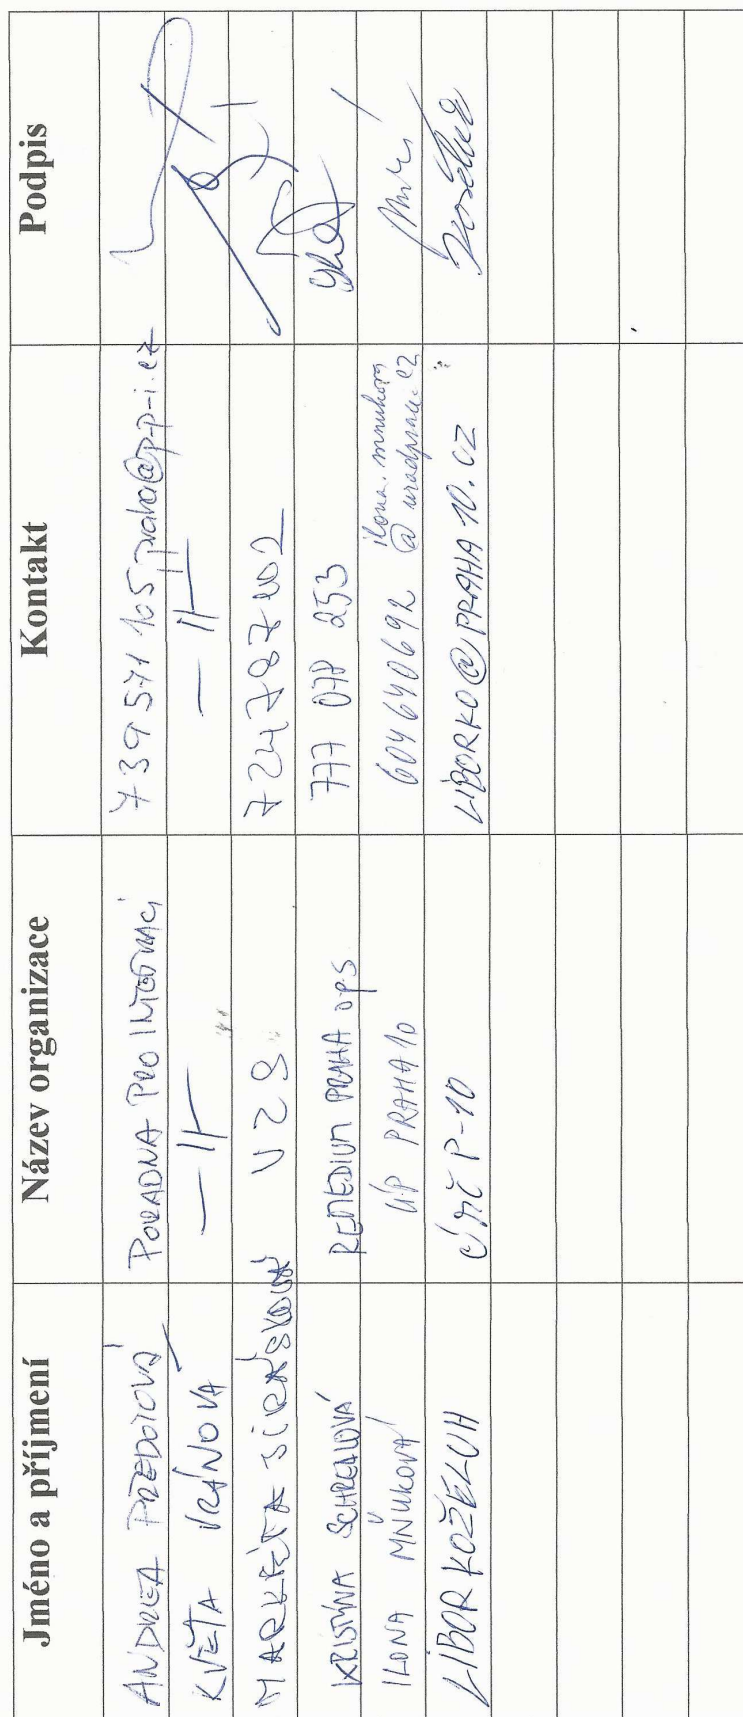 Jméno a příjmení Název organizace Kontakt Podpis
ANDREA PŘEDOTOVÁ PORADNA PRO INTEGRACI 739 571 105 praha@p-p-i.cz
KVĚTA VRÁNOVÁ — 11 — — 11 —
MARKÉTA VZS 724787002
KRISTÝNA REMEDIUM PRAHA ops 777 078 253
ILONA MŇUKOVÁ ÚP PRAHA 10 604640692 ilona.mnukova
@uradprace.cz
LIBOR KOŽELUH ÚMČ P-10 LIBORKO@PRAHA10.CZ